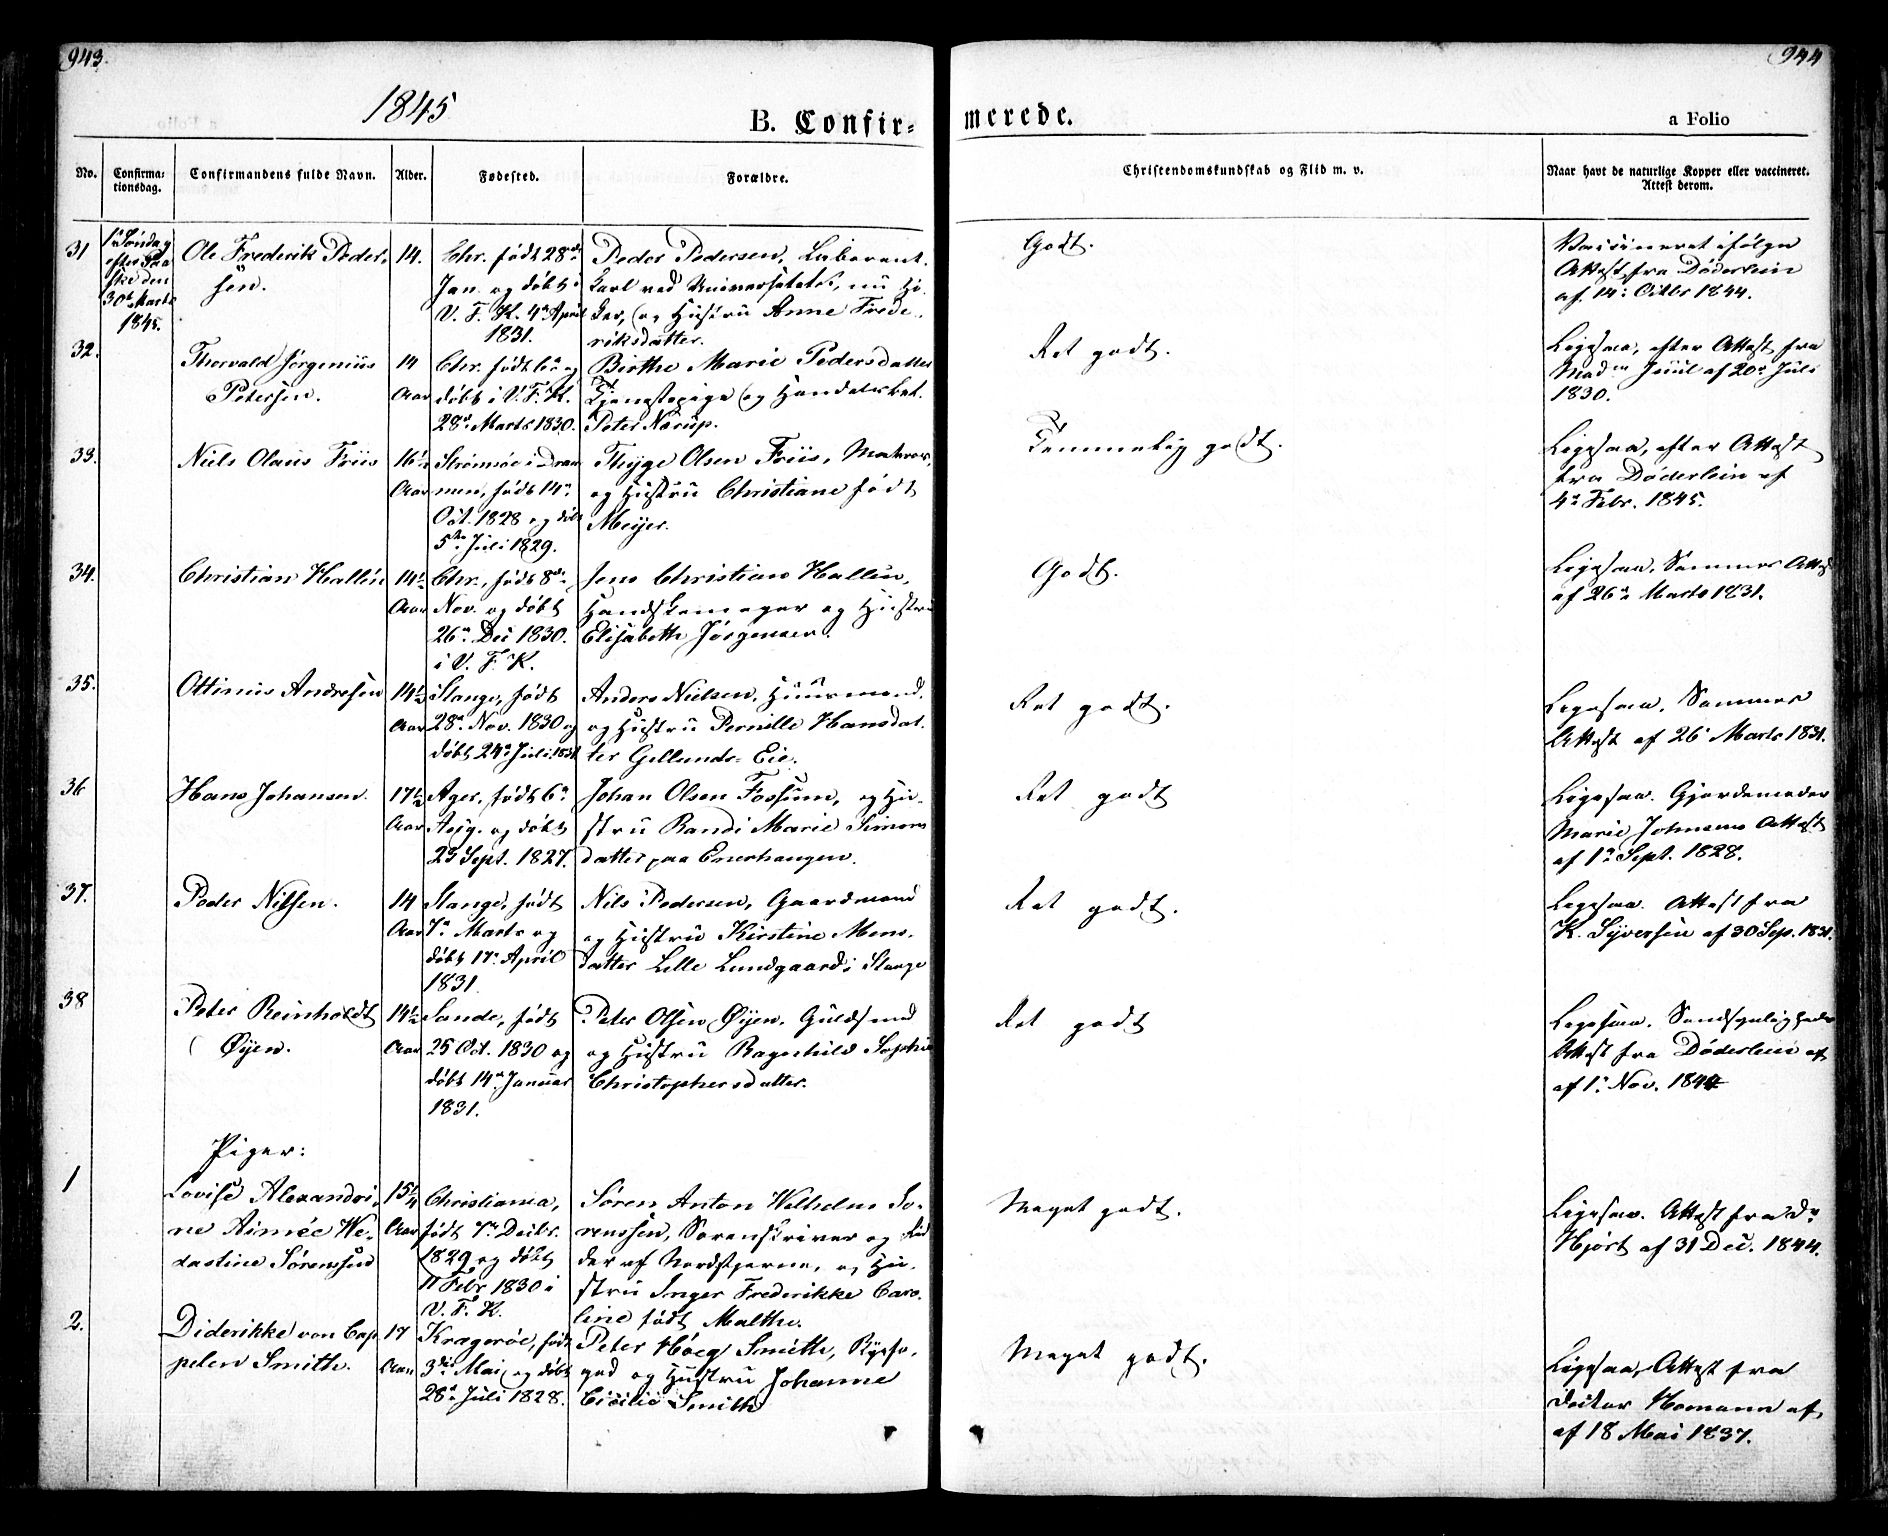 943.
944
1845
B. Confir-
merede.
a Folio
No.
Confirmationsdag.
Confirmandens fulde Navn.
Alder.
Fødested.
Forældre.
Christendomskundskab og Flid m. v.
Naar havt de naturlige Kopper eller vaccineret. Attest derom.
31
1ste Søndag
efter Paa
ske den
30te Marts
1845.
Ole Frederik Peder-
sen.
14.
Chr. født 28de
Jan. og døbt i
V. F. K. 4de April
1831.
Peder Pedersen, Laborant-
karl ved Universitetet, nu
og Hustru Anne Frede-
riksdatter.
Godt.
Vaccineret ifølge
Attest fra Døderlein
af 14. Octbr 1844.
32.
Thorvald Jørginius
Petersen.
14
Aar
Chr. født 6te og
døbt i V. F. K.
28de Marts 1830.
Birthe Marie Pedersdatter
Tjenestepige og Handelsbet.
Peter Narup.
Ret godt.
Ligesaa, efter Attest fra
Madm Juul af 20de Juli
1830.
33.
Niels Olaus Friis
16½
Aar
Strømsøe i Dram
men, født 14de
Oct. 1828 og døbt
5te Juli 1829.
Thyge Olsen Friis, Matros,
og Hustru Christiane født
Meyer.
Temmelig godt.
Ligesaa, efter Attest
fra Døderlein af
4de Febr. 1845.
34.
Christian Hallin
14½
Aar
Chr., født 8de
Nov. og døbt
26de Dec 1830.
i V. F. K.
Jens Christian Hallin,
Handskemager og Hustru
Elisabeth Jørgensen.
Godt.
Ligesaa. Sammes Attest
af 26de Marts 1831.
35.
Ottinius Andresen
14½
Aar
Stange, født
28de Nov. 1830 og
døbt 24de Juli 1831
Anders Nielsen, Huusmand
og Hustru Pernille Hansdat-
ter Gillunds-Eie.
Ret godt.
Ligesaa. Sammes
Attest af 26 Marts 1831.
36
Hans Johansen.
17½
Aar
Ager, født 6te
Aug. og døbt
23 Sept. 1827.
Johan Olsen Fossum, og Hu-
stru Randi Marie Simons
datter paa Enerhaugen.
Ret godt
Ligesaa. Gjordemoder
Marie Johnsens Attest
af 1ste Sept. 1828.
37.
Peder Nilsen.
14
Aar
Stange, født
7de Marts og
døbt 17de April
1831.
Nils Pedersen, Gaardmand
og Hustru Kirstine Mons-
datter Lille Lundgaard i Stange
Ret godt.
Ligesaa. Attest fra
K. Syversen af 30 Sep. 1831.
38
Peter Reinholdt
Øyen.
14½
Aar
Sande, født
25 Oct. 1830 og
døbt 14de Januar
1831.
Peter Olsen Øyen. Guldsmed
og Hustru Ragnhild Sophie
Christophersdatter.
Ret godt
Ligesaa. Sandsynligheds
Attest fra Døderlein af
af 1. Nov. 1844
Piger:
1
Lovise Alexandri-
ne Aimée We-
dastine Sørenssen
15¼
Aar
Christiania,
født 7de Decbr.
1829 og døbt
11 Febr 1830 i
V. F. K.
Søren Anton Wilhelm Sø-
renssen, Sorenskriver og Rid
der af Nordstjernen, og Hu-
stru Inger Frederikke Caro-
line født Malthe.
Meget godt.
Ligesaa. Attest fra Dr
Hjort af 31 Dec. 1844.
2.
Diderikke von Cap
pelen Smith.
17
Aar
Kragerøe, født
3die Mai og døbt
28de Juli 1828.
Peter Høeg Smith, Byfo-
ged og Hustru Johanne
Cicilie Smith
Meget godt.
Ligesaa, Attest fra
Doctor Homann af
af 18 Mai 1837.